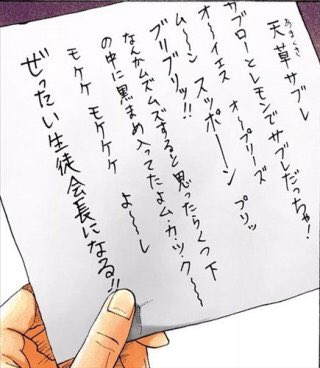 あまくさ
天草サブレ
サブローとレモンでサブレだっちゃ!
オ〜イエス オ〜プリーズ プリッ
ム〜〜ン スッポーン
ブリブリッ!!
なんかムズムズすると思ったらくつ下
の中に黒まめ入ってたよム・カ・ツ・ク〜〜
モケケ モケケケ よ〜〜し
ぜったい生徒会長になる!!